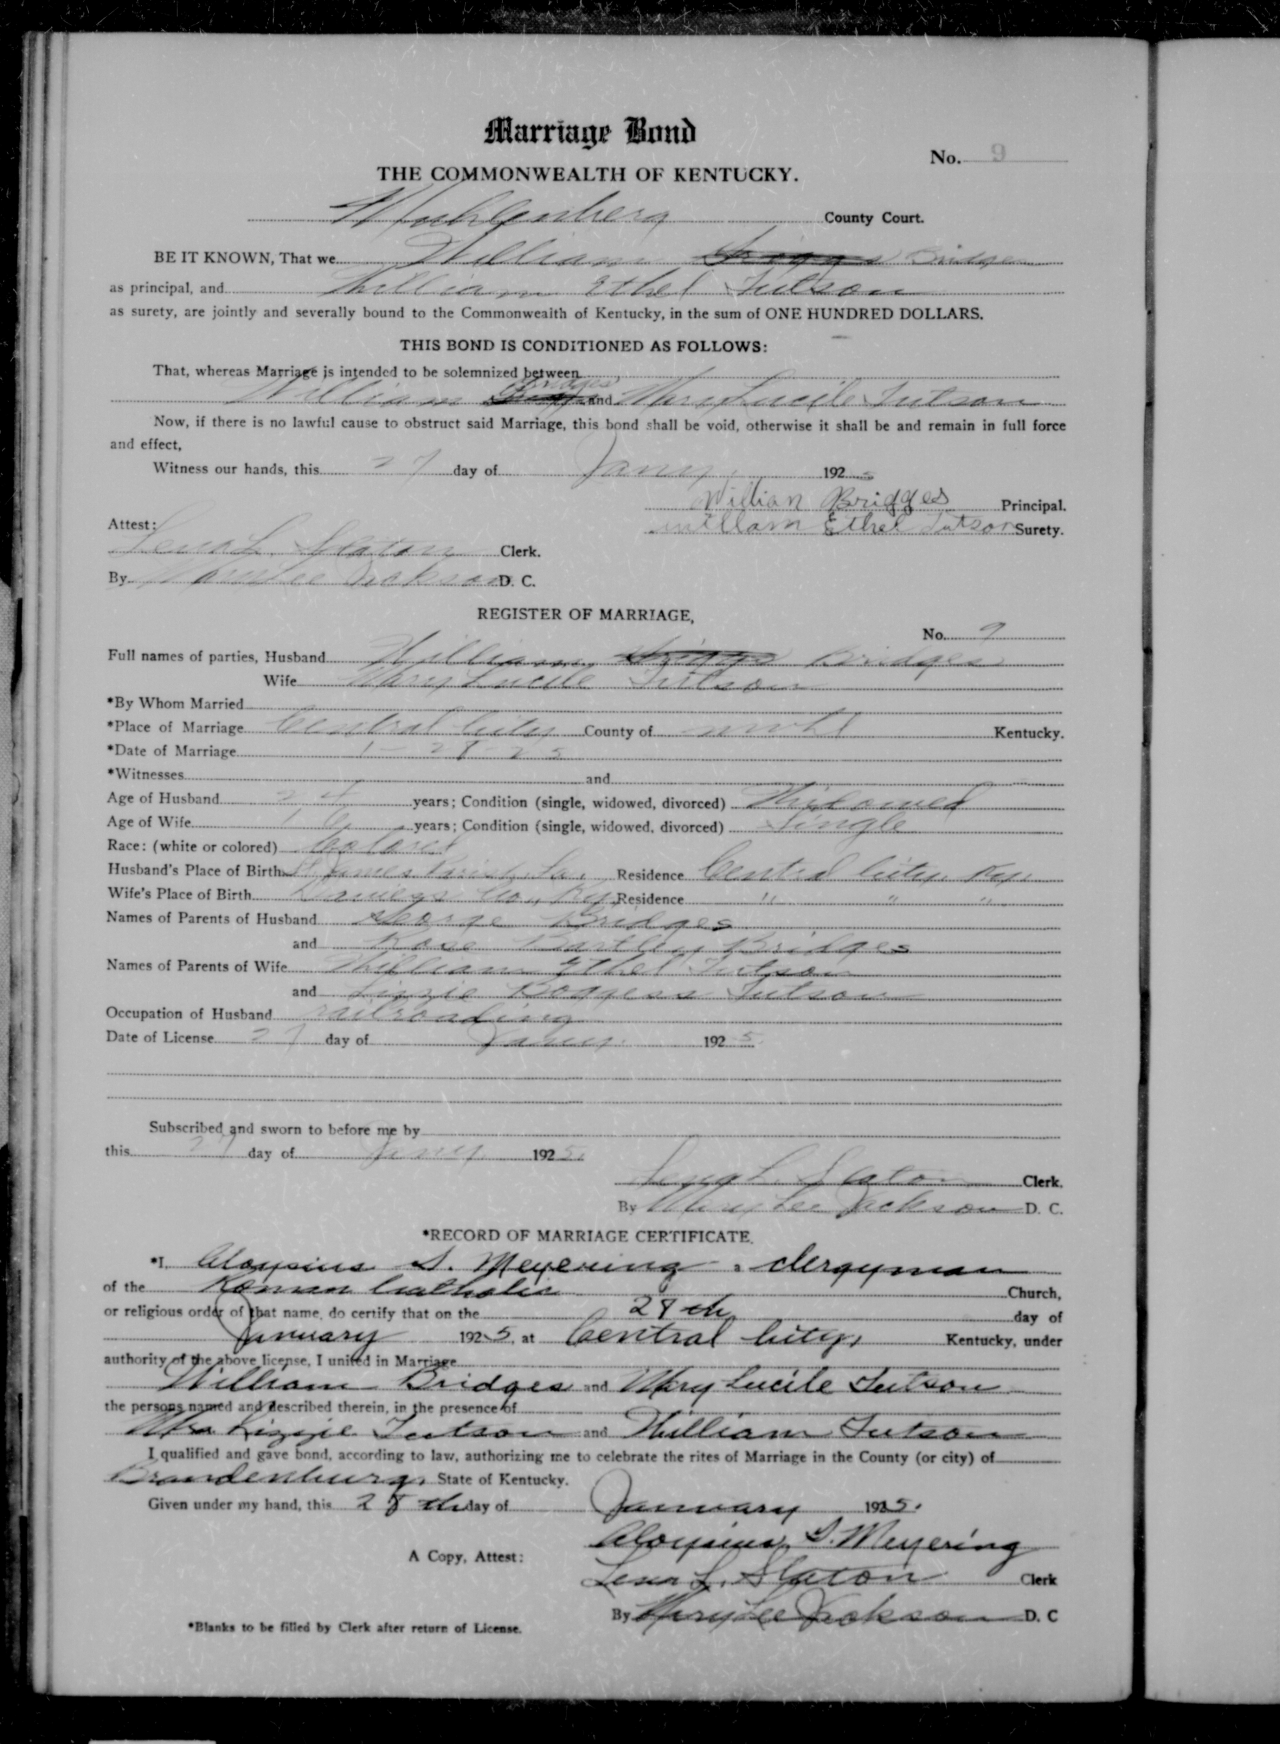 Marriage Bond
No. 9
THE COMMONWEALTH OF KENTUCKY.
Muhlenberg County Court.
BE IT KNOWN, That we William Briggs Bridges
as principal, and William Ethel Tutson
as surety, are jointly and severally bound to the Commonwealth of Kentucky, in the sum of ONE HUNDRED DOLLARS.
THIS BOND IS CONDITIONED AS FOLLOWS:
That, whereas Marriage is intended to be solemnized between
William Bridges and Mary Lucile Tutson
Now, if there is no lawful cause to obstruct said Marriage, this bond shall be void, otherwise it shall be and remain in full force
and effect,
Witness our hands, this 27 day of Jany. 1925
William Bridges Principal.
William Ethel Tutson Surety.
Attest:
Lena L. Slaton Clerk.
By Mary Lee Jackson D. C.
REGISTER OF MARRIAGE,
No. 9
Full names of parties, Husband William Briggs Bridges
Wife Mary Lucile Tutson
*By Whom Married
*Place of Marriage Central City County of Muhl Kentucky.
*Date of Marriage 1-28-25
*Witnesses and
Age of Husband 24 years; Condition (single, widowed, divorced) Widowed
Age of Wife 16 years; Condition (single, widowed, divorced) Single
Race: (white or colored) Colored
Husband's Place of Birth St. James Parish, La. Residence Central City, Ky.
Wife's Place of Birth Daviess Co., Ky. Residence " " "
Names of Parents of Husband George Bridges
and Rose Bartley Bridges
Names of Parents of Wife William Ethel Tutson
and Lizzie Boggess Tutson
Occupation of Husband railroading
Date of License 27 day of Jany. 1925
Subscribed and sworn to before me by
this 27 day of Jany 1925.
Lena L. Slaton Clerk.
By Mary Lee Jackson D. C.
*RECORD OF MARRIAGE CERTIFICATE.
*I, Aloysius S. Meyering a clergyman
of the Roman Catholic Church,
or religious order of that name, do certify that on the 28th day of
January 1925, at Central City, Kentucky, under
authority of the above license, I united in Marriage
William Bridges and Mary Lucile Tutson
the persons named and described therein, in the presence of
Mrs Lizzie Tutson and William Tutson
I qualified and gave bond, according to law, authorizing me to celebrate the rites of Marriage in the County (or city) of
Brandenburg, State of Kentucky.
Given under my hand, this 28th day of January 1925.
Aloysius S. Meyering
A Copy, Attest:
Lena L. Slaton Clerk
By Mary Lee Jackson D. C
*Blanks to be filled by Clerk after return of License.